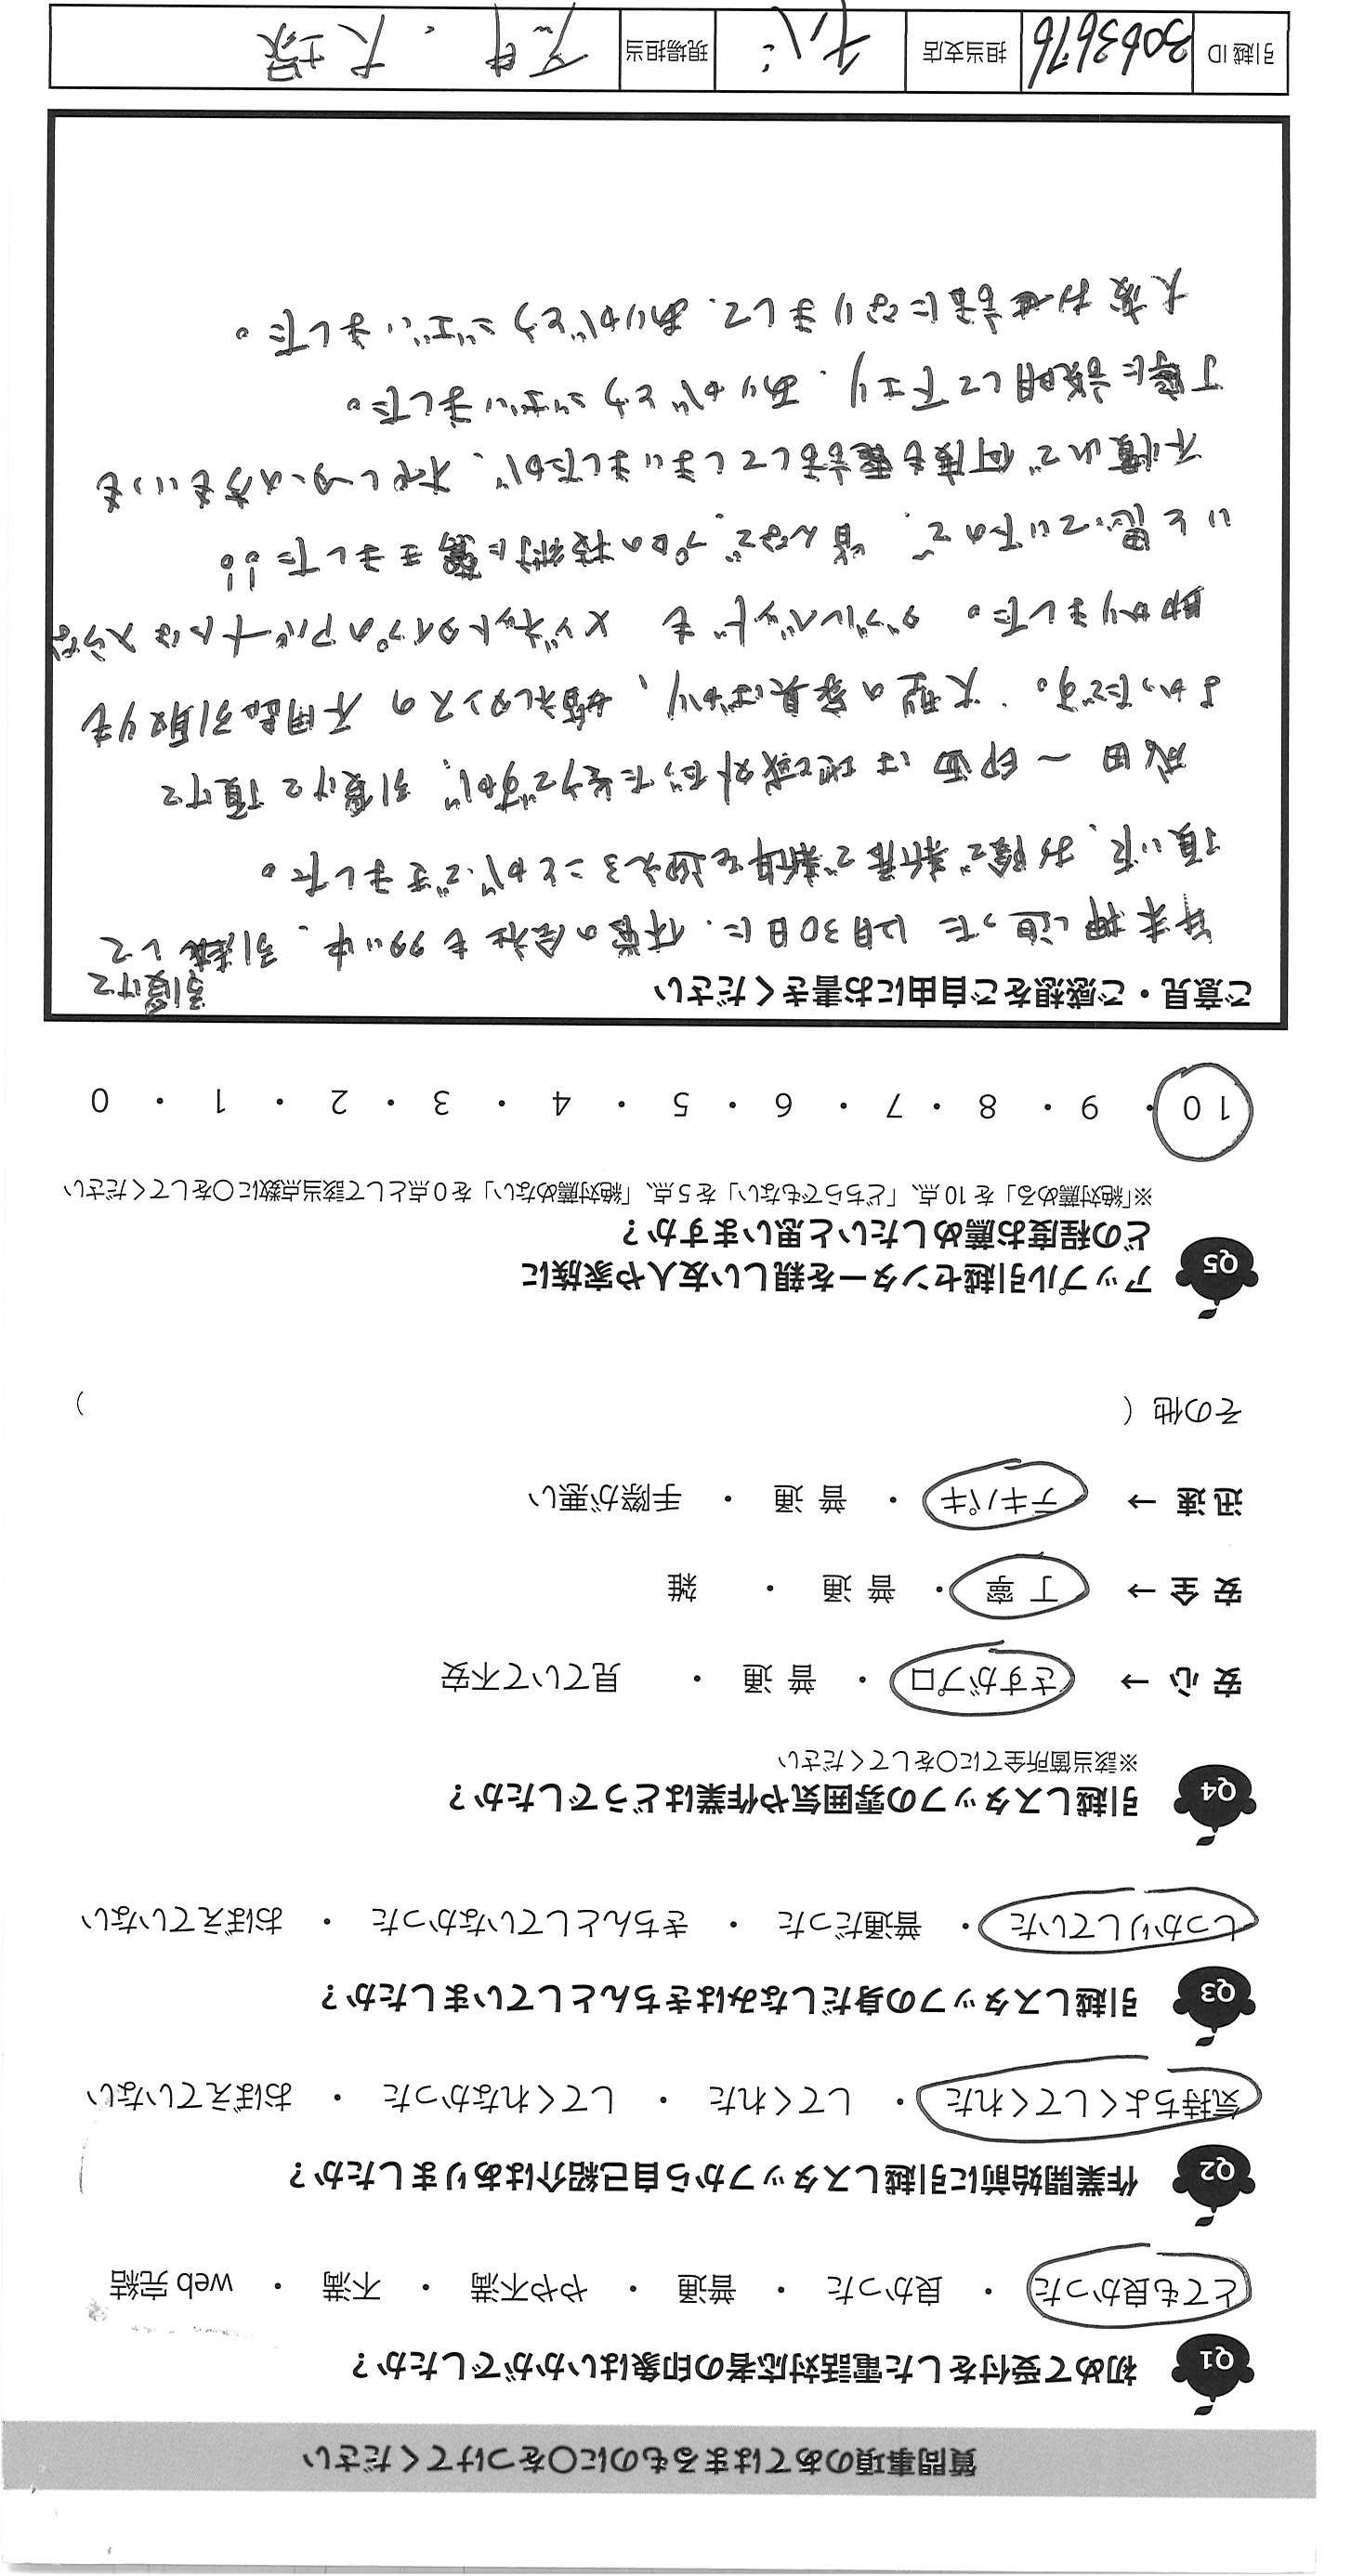 質問事項のあてはまるものに〇をつけてください
Q1 初めて受付をした電話対応者の印象はいかがでしたか？
とても良かった ・ 良かった ・ 普通 ・ やや不満 ・ 不満 ・ web 完結
Q2 作業開始前に引越しスタッフから自己紹介はありましたか？
気持ちよくしてくれた ・ してくれた ・ してくれなかった ・ おぼえていない
Q3 引越しスタッフの身だしなみはきちんとしていましたか？
しっかりしていた ・ 普通だった ・ きちんとしていなかった ・ おぼえていない
Q4 引越しスタッフの雰囲気や作業はどうでしたか？
※該当箇所全てに〇をしてください
安心 → さすがプロ ・ 普通 ・ 見ていて不安
安全 → 丁寧 ・ 普通 ・ 雑
迅速 → テキパキ ・ 普通 ・ 手際が悪い
その他（ ）
Q5 アップル引越センターを親しい友人や家族に
どの程度お薦めしたいと思いますか？
※「絶対薦める」を10点、「どちらでもない」を5点、「絶対薦めない」を0点として該当点数に〇をしてください
10 ・ 9 ・ 8 ・ 7 ・ 6 ・ 5 ・ 4 ・ 3 ・ 2 ・ 1 ・ 0
ご意見・ご感想をご自由にお書きください
引受けて
年末押し迫った12月30日に、休業の会社も多い中、引越して
頂いて、お陰で新居で新年を迎えることができました。
成田〜印西は地域外だったそうですが、引受けて頂けて
よかったです。大型の家具ばかり、婚礼タンスの不用品引取りも
助かりました。ダブルベッドも メゾネットタイプのアパートには入らな
いと思っていたので、皆んなで、プロの技術に驚きました!!
不慣れで何度も電話してしまいましたが、オペレーターの方もいつも
丁寧に説明して下さり、ありがとうございました。
大変お世話になりまして、ありがとうございました。
引越ID 3063676 担当支店 ちば 現場担当 大塚